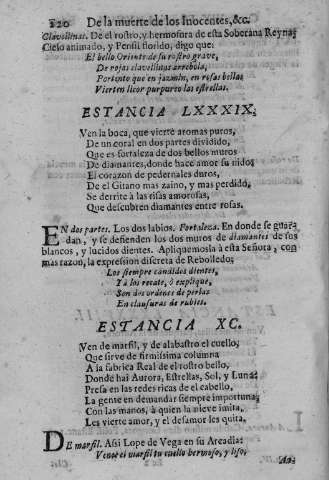 120 De la muerte de los Inocentes, &c.
Clavellinas. De el rostro, y hermosura de esta Soberana Reyna,
Cielo animado, y Pensil florido, digo que:
El bello Oriente de su rostro grave,
De rojas clavellinas arrebola,
Portento que en jazmin, en rosas bellas
Vierten licor purpureo las estrellas.
ESTANCIA LXXXIX.
Ven la boca, que vierte aromas puros,
De un coral en dos partes dividido,
Que es fortaleza de dos bellos muros
De diamantes, donde hace amor su nido;
El corazon de pedernales duros,
De el Gitano mas zaino, y mas perdido,
Se derrite à las risas amorosas,
Que descubren diamantes entre rosas.
EN dos partes. Los dos labios. Fortaleza. En donde se guar-
dan, y se defienden los dos muros de diamantes de sus
blancos, y lucidos dientes. Apliquemosla à esta Señora, con
mas razon, la expression discreta de Rebolledo:
Los siempre candidos dientes,
Yà los recate, ò explique,
Son dos ordenes de perlas
En clausuras de rubies.
ESTANCIA XC.
Ven de marfil, y de alabastro el cuello,
Que sirve de firmissima columna
A la fabrica Real de el rostro bello,
Donde hai Aurora, Estrellas, Sol, y Luna:
Presa en las redes ricas de el cabello,
La gente en demandar siempre importuna,
Con las manos, à quien la nieve imita,
Les vierte amor, y el desamor les quita.
DE marfil. Assi Lope de Vega en su Arcadia:
Vence el marfil tu cuello hermoso, y liso,